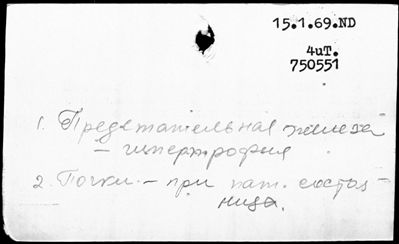 15.1.69.ND
4uT.
750551
1. Предстательная железа
- гипертрофия
2. Почки - при пат. состоя-
ниях.